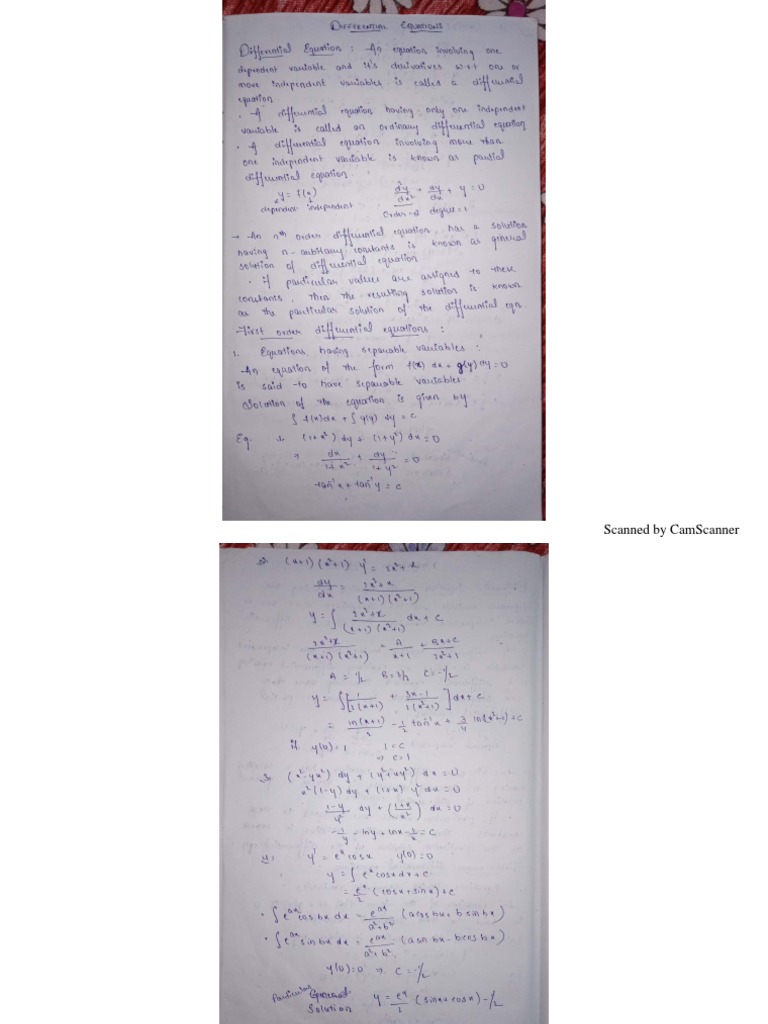 DIFFERENTIAL EQUATIONS
Differential Equation : An equation involving one
dependent variable and it's derivatives w.r.t one or
more independent variables is called a differential
equation
• A differential equation having only one independent
variable is called an ordinary differential equation
• A differential equation involving more than
one independent variable is known as partial
differential equation.
y = f(x) d²y/dx² + dy/dx + y = 0
dependent independent order-2 degree=1
→ An nth order differential equation, has a solution
having n-arbitrary constants is known as general
solution of differential equation
• if particular values are assigned to these
constants, then the resulting solution is known
as the particular solution of the differential eqn.
First order differential equations :
1. Equations having separable variables :
An equation of the form f(x) dx + g(y) dy = 0
is said to have separable variables
Solution of the equation is given by
∫ f(x)dx + ∫ g(y) dy = c
Eg. (1+x²) dy + (1+y²) dx = 0
⇒ dx/1+x² + dy/1+y² = 0
tan⁻¹x + tan⁻¹y = c
Scanned by CamScanner
(x+1) (x²+1) y' = 2x²+x
dy/dx = 2x²+x/(x+1)(x²+1)
y = ∫ 2x²+x/(x+1)(x²+1) dx + c
2x²+x/(x+1)(x²+1) = A/x+1 + Bx+C/x²+1
A = 1/2 B = 3/2 C = -1/2
y = ∫[1/2(x+1) + 3x-1/2(x²+1)]dx + c
= ln(x+1)/2 - 1/2 tan⁻¹x + 3/4 ln(x²+1) + c
if y(0) = 1 1 = c
⇒ c = 1
(x²-yx²) dy + (y²+xy²) dx = 0
x²(1-y)dy + (1+x) y² dx = 0
1-y/y² dy + (1+x/x²) dx = 0
-1/y - lny + lnx - 1/x = c
y' = eˣ cosx y(0) = 0
y = ∫ eˣ cosx dx + c
= eˣ/2 (cosx + sinx) + c
• ∫ eᵃˣ cosbx dx = eᵃˣ/a²+b² (acosbx + bsinbx)
• ∫ eᵃˣ sinbx dx = eᵃˣ/a²+b² (asinbx - bcosbx)
y(0) = 0 ⇒ c = -1/2
Particular
Solution y = eˣ/2 (sinx + cosx) - 1/2